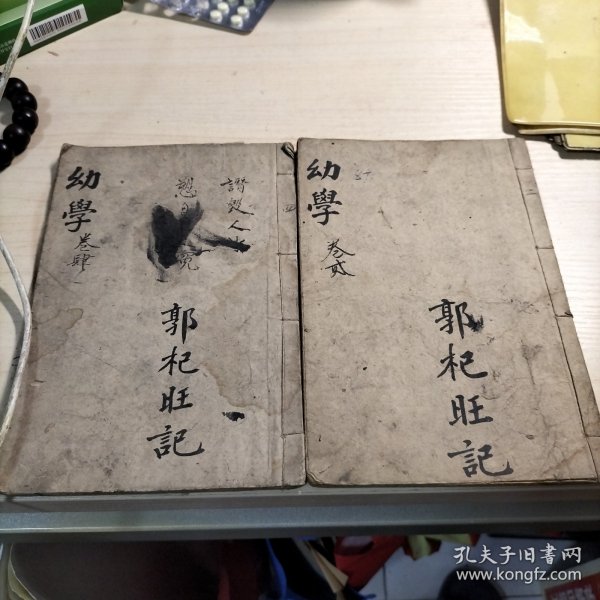 幼學
卷肆
郭杞旺記
幼學
卷貳
郭杞旺記
孔夫子旧书网
www.kongfz.com